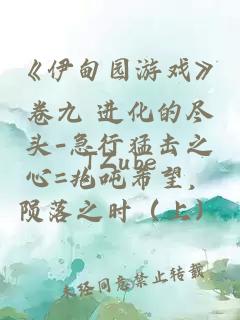 《伊甸园游戏》
卷九 进化的尽
头-急行猛击之
心=兆吨希望，
陨落之时（上）
TZube
未经同意禁止转载